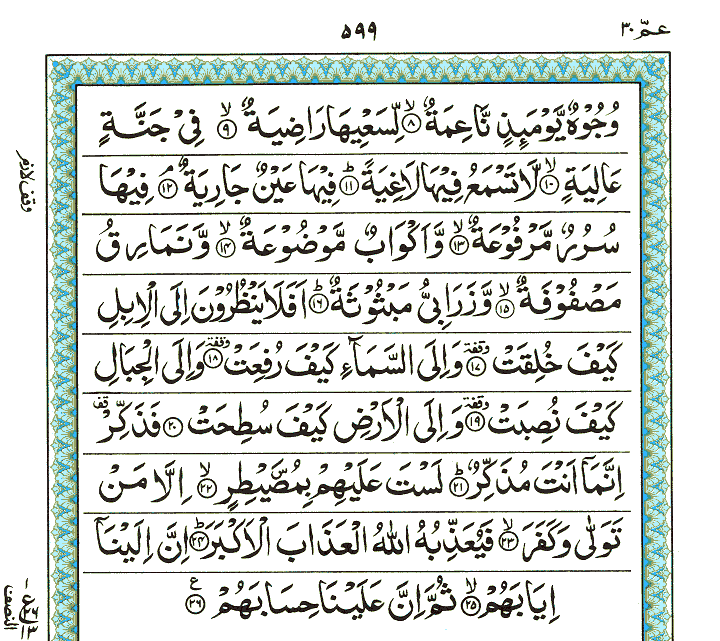 عمّ ٣٠
٥٩٩
وُجُوْهٌ يَّوْمَئِذٍ نَّاعِمَةٌ ۙ‏﴿۸﴾ لِّسَعْيِهَا رَاضِيَةٌ ۙ‏﴿۹﴾ فِىْ جَنَّةٍ
عَالِيَةٍ ۙ‏﴿۱۰﴾ لَّا تَسْمَعُ فِيْهَا لَاغِيَةً ؕ‏﴿۱۱﴾ فِيْهَا عَيْنٌ جَارِيَةٌ ۘ‏﴿۱۲﴾ فِيْهَا
سُرُرٌ مَّرْفُوْعَةٌ ۙ‏﴿۱۳﴾ وَّاَكْوَابٌ مَّوْضُوْعَةٌ ۙ‏﴿۱۴﴾ وَّنَمَارِقُ
مَصْفُوْفَةٌ ۙ‏﴿۱۵﴾ وَّزَرَابِىُّ مَبْثُوْثَةٌ ؕ‏﴿۱۶﴾ اَفَلَا يَنْظُرُوْنَ اِلَى الْاِبِلِ
كَيْفَ خُلِقَتْ وقفة ﴿۱۷﴾ وَاِلَى السَّمَآءِ كَيْفَ رُفِعَتْ وقفة ﴿۱۸﴾ وَاِلَى الْجِبَالِ
كَيْفَ نُصِبَتْ وقفة ﴿۱۹﴾ وَاِلَى الْاَرْضِ كَيْفَ سُطِحَتْ ﴿۲۰﴾ فَذَكِّرْ قف
اِنَّمَاۤ اَنْتَ مُذَكِّرٌ ؕ‏﴿۲۱﴾ لَسْتَ عَلَيْهِمْ بِمُصَۜيْطِرٍ ۙ‏﴿۲۲﴾ اِلَّا مَنْ
تَوَلّٰى وَكَفَرَ ۙ‏﴿۲۳﴾ فَيُعَذِّبُهُ اللّٰهُ الْعَذَابَ الْاَكْبَرَ ؕ‏﴿۲۴﴾ اِنَّ اِلَيْنَاۤ
اِيَابَهُمْ ۙ‏﴿۲۵﴾ ثُمَّ اِنَّ عَلَيْنَا حِسَابَهُمْ ع ﴿۲۶﴾
وقف لازم
النصف